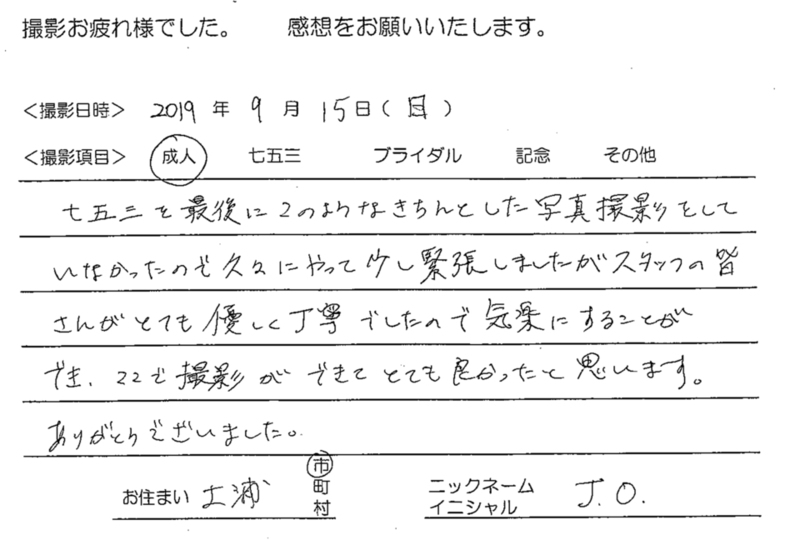 撮影お疲れ様でした。 感想をお願いいたします。
<撮影日時> 2019 年 9 月 15日(日)
<撮影項目> 成人 七五三 ブライダル 記念 その他
七五三を最後にこのようなきちんとした写真撮影をして
いなかったので久々にやって少し緊張しましたがスタッフの皆
さんがとても優しく丁寧でしたので気楽にすることが
でき、ここで撮影ができてとても良かったと思います。
ありがとうございました。
お住まい 土浦 市町村 ニックネーム イニシャル J.O.